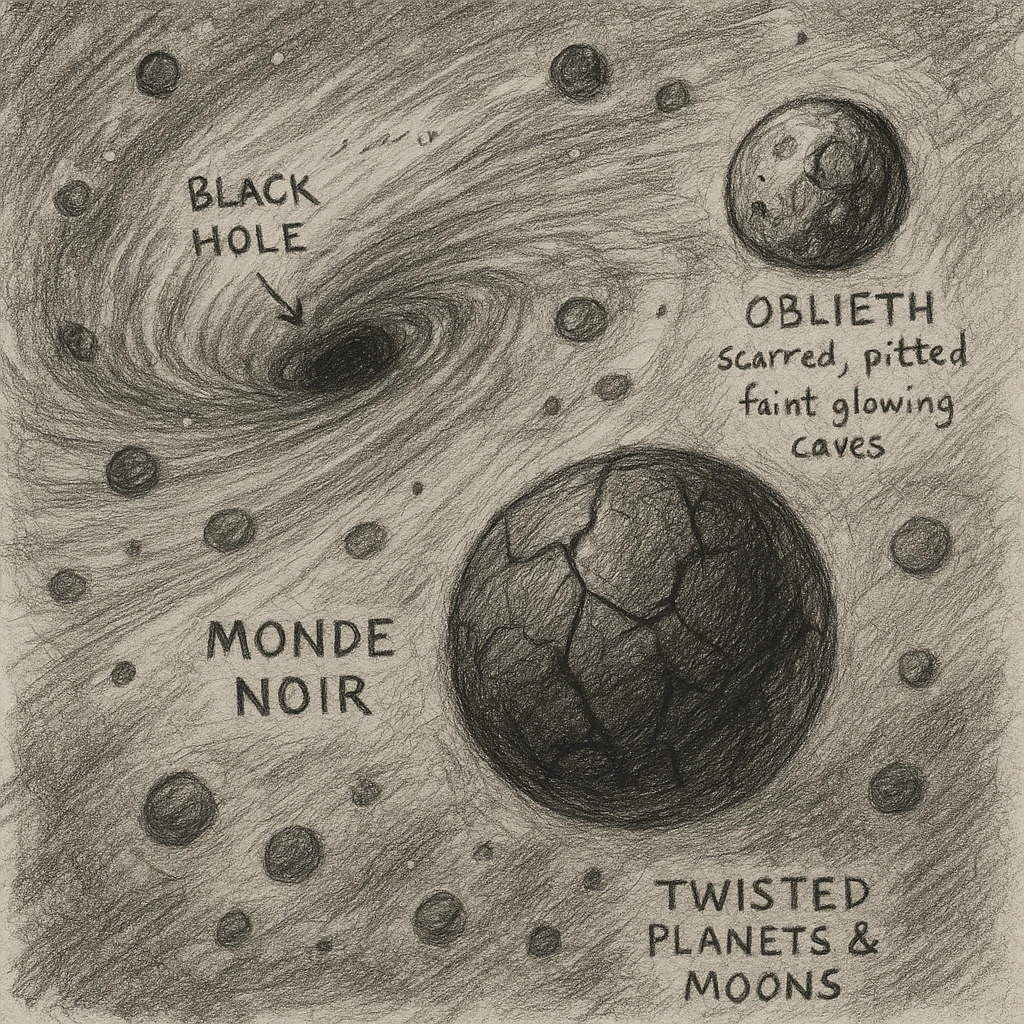 BLACK
HOLE
OBLIETH
scarred, pitted
faint glowing
caves
MONDE
NOIR
TWISTED
PLANETS &
MOONS